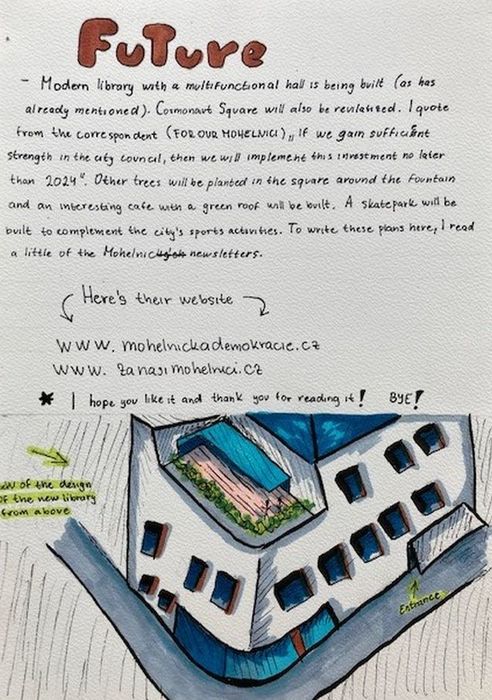 Future
- Modern library with a multifunctional hall is being built (as has
already mentioned). Cosmonaut Square will also be revilatised. I quote
from the correspondent (FOR OUR MOHELNICI) „ If we gain sufficient
strength in the city council, then we will implement this investment no later
than 2024". Other trees will be planted in the square around the fountain
and an interesting cafe with a green roof will be built. A skatepark will be
built to complement the city's sports activities. To write these plans here, I read
a little of the Mohelnic newsletters.
Here's their website
www.mohelnickademokracie.cz
www.zanasimohelnici.cz
* I hope you like it and thank you for reading it! BYE!
of the design
of the new library
from above
Entrance